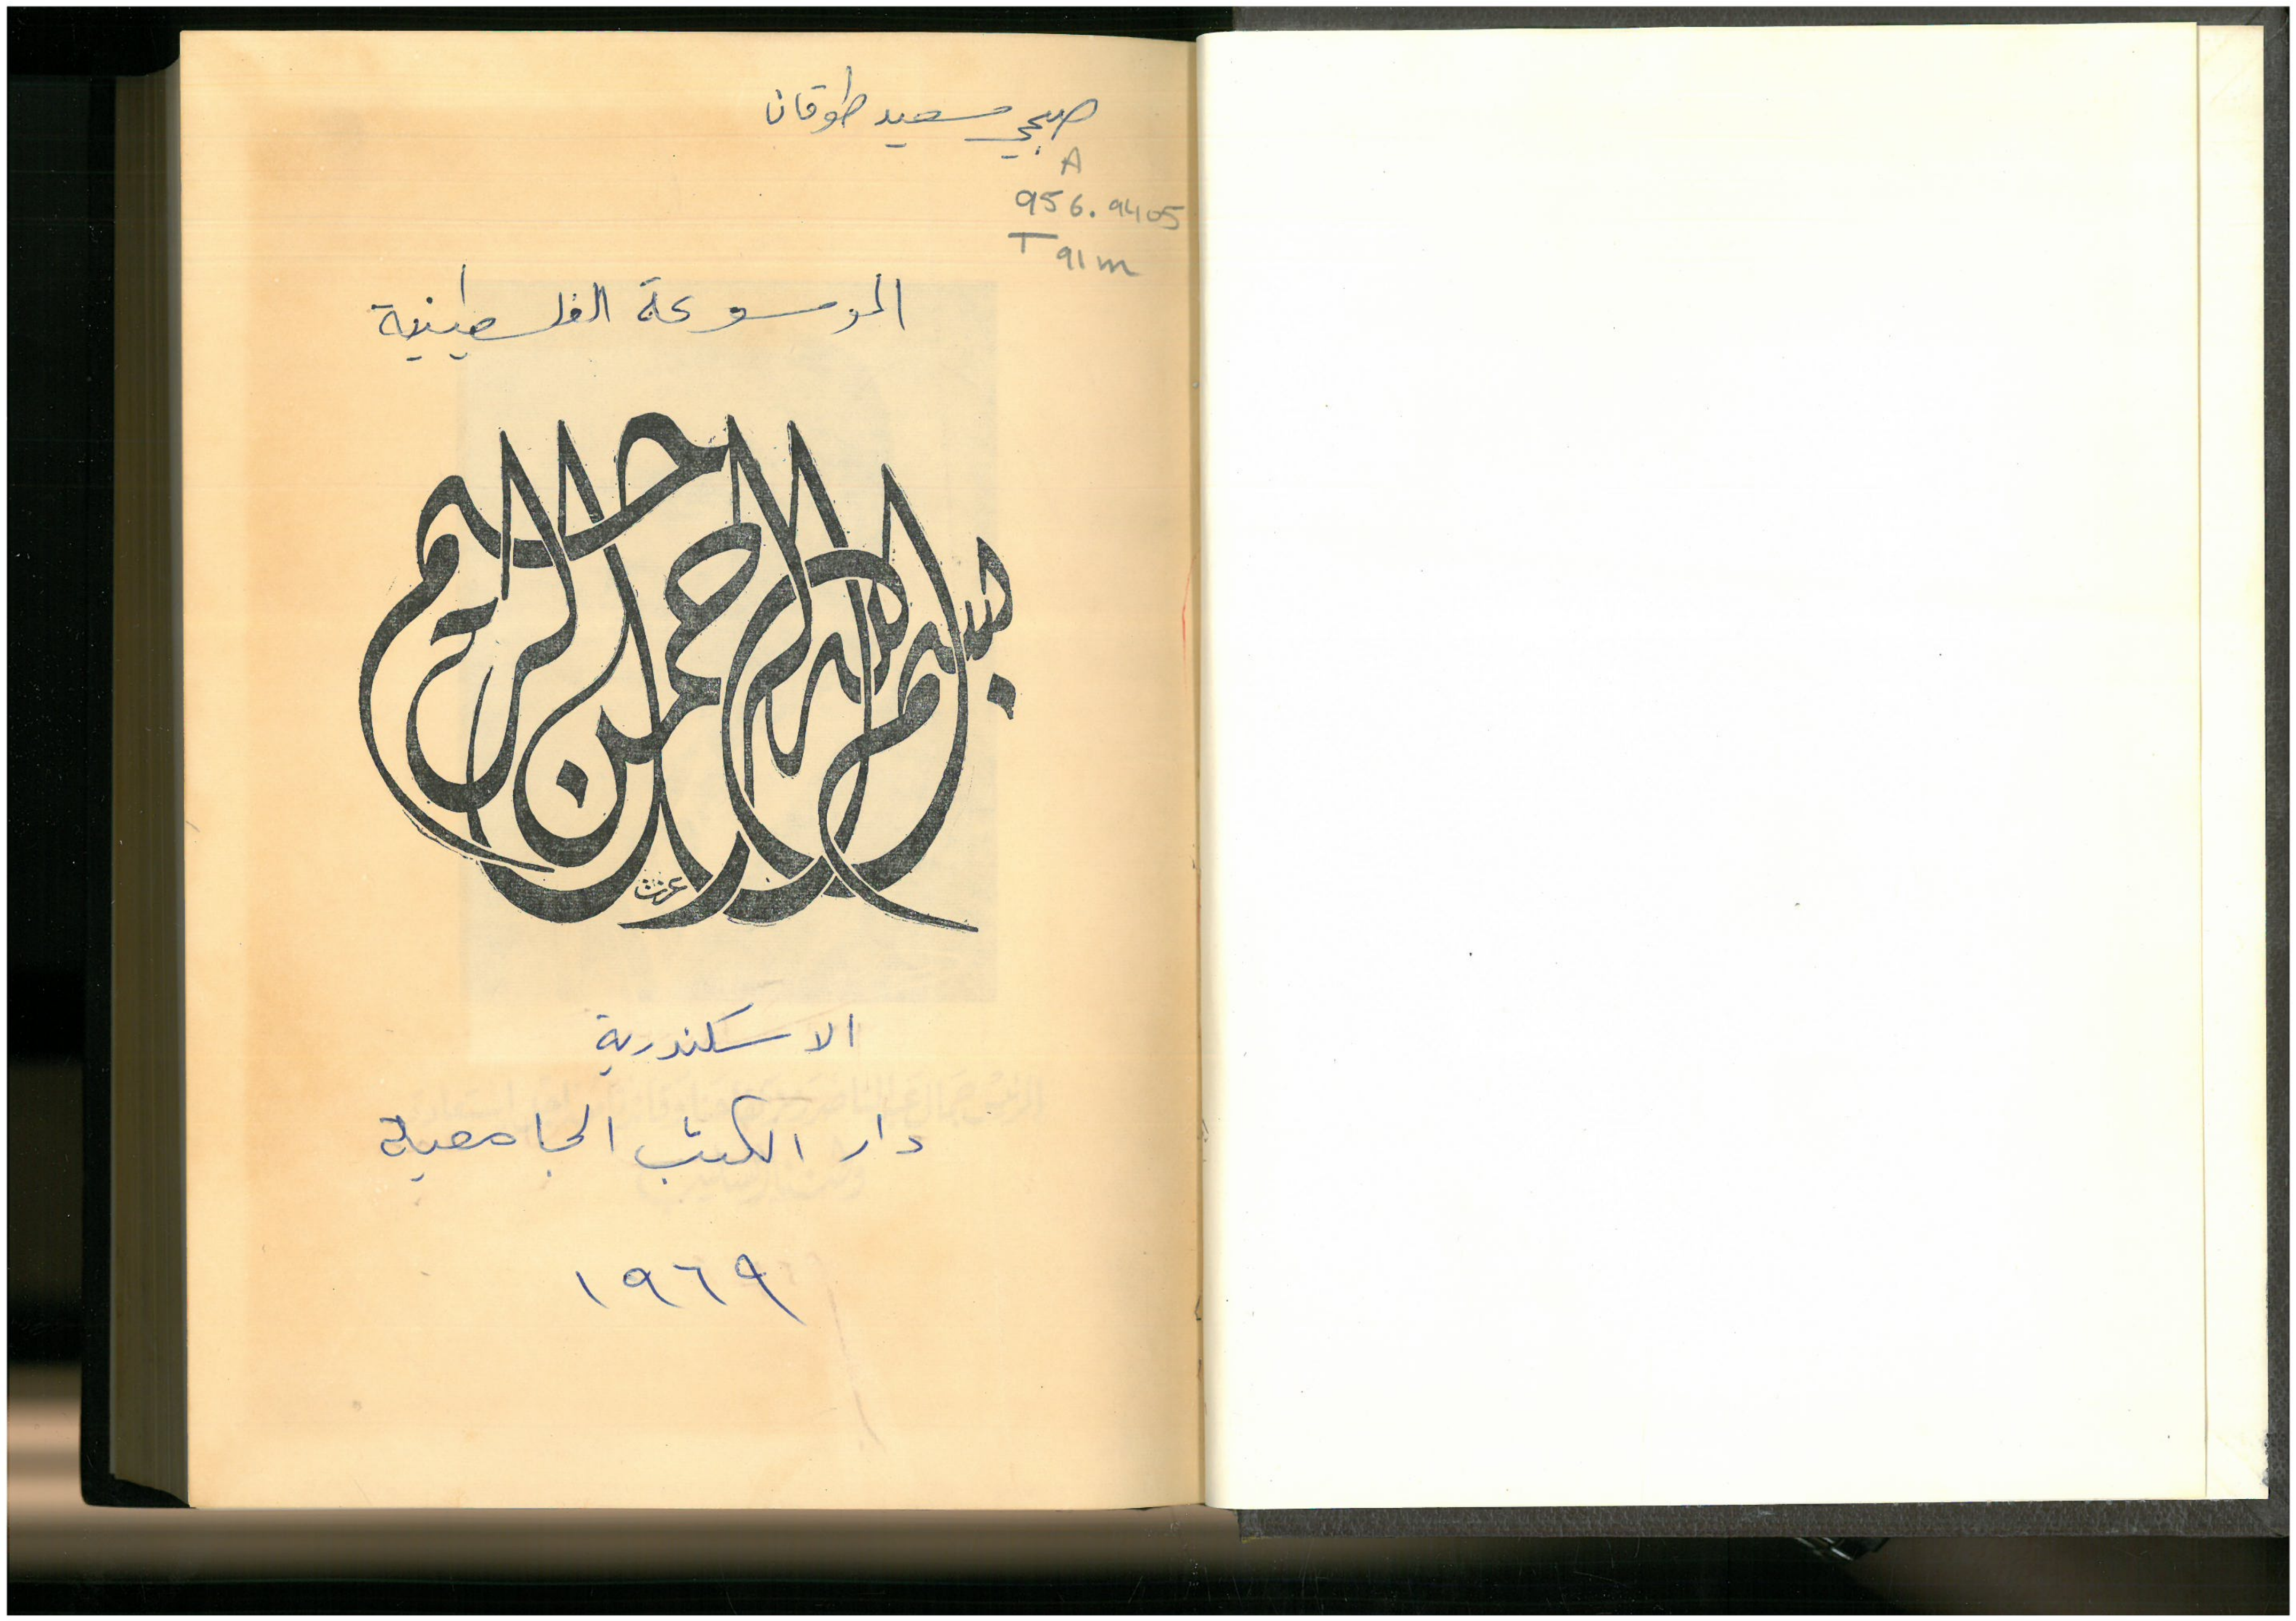 صبحي سعيد طوقان
A
956.9405
T91m
الموسوعة الفلسطينية
بسم الله الرحمن الرحيم
عزت
الاسكندرية
دار الكتب الجامعية
١٩٦٩